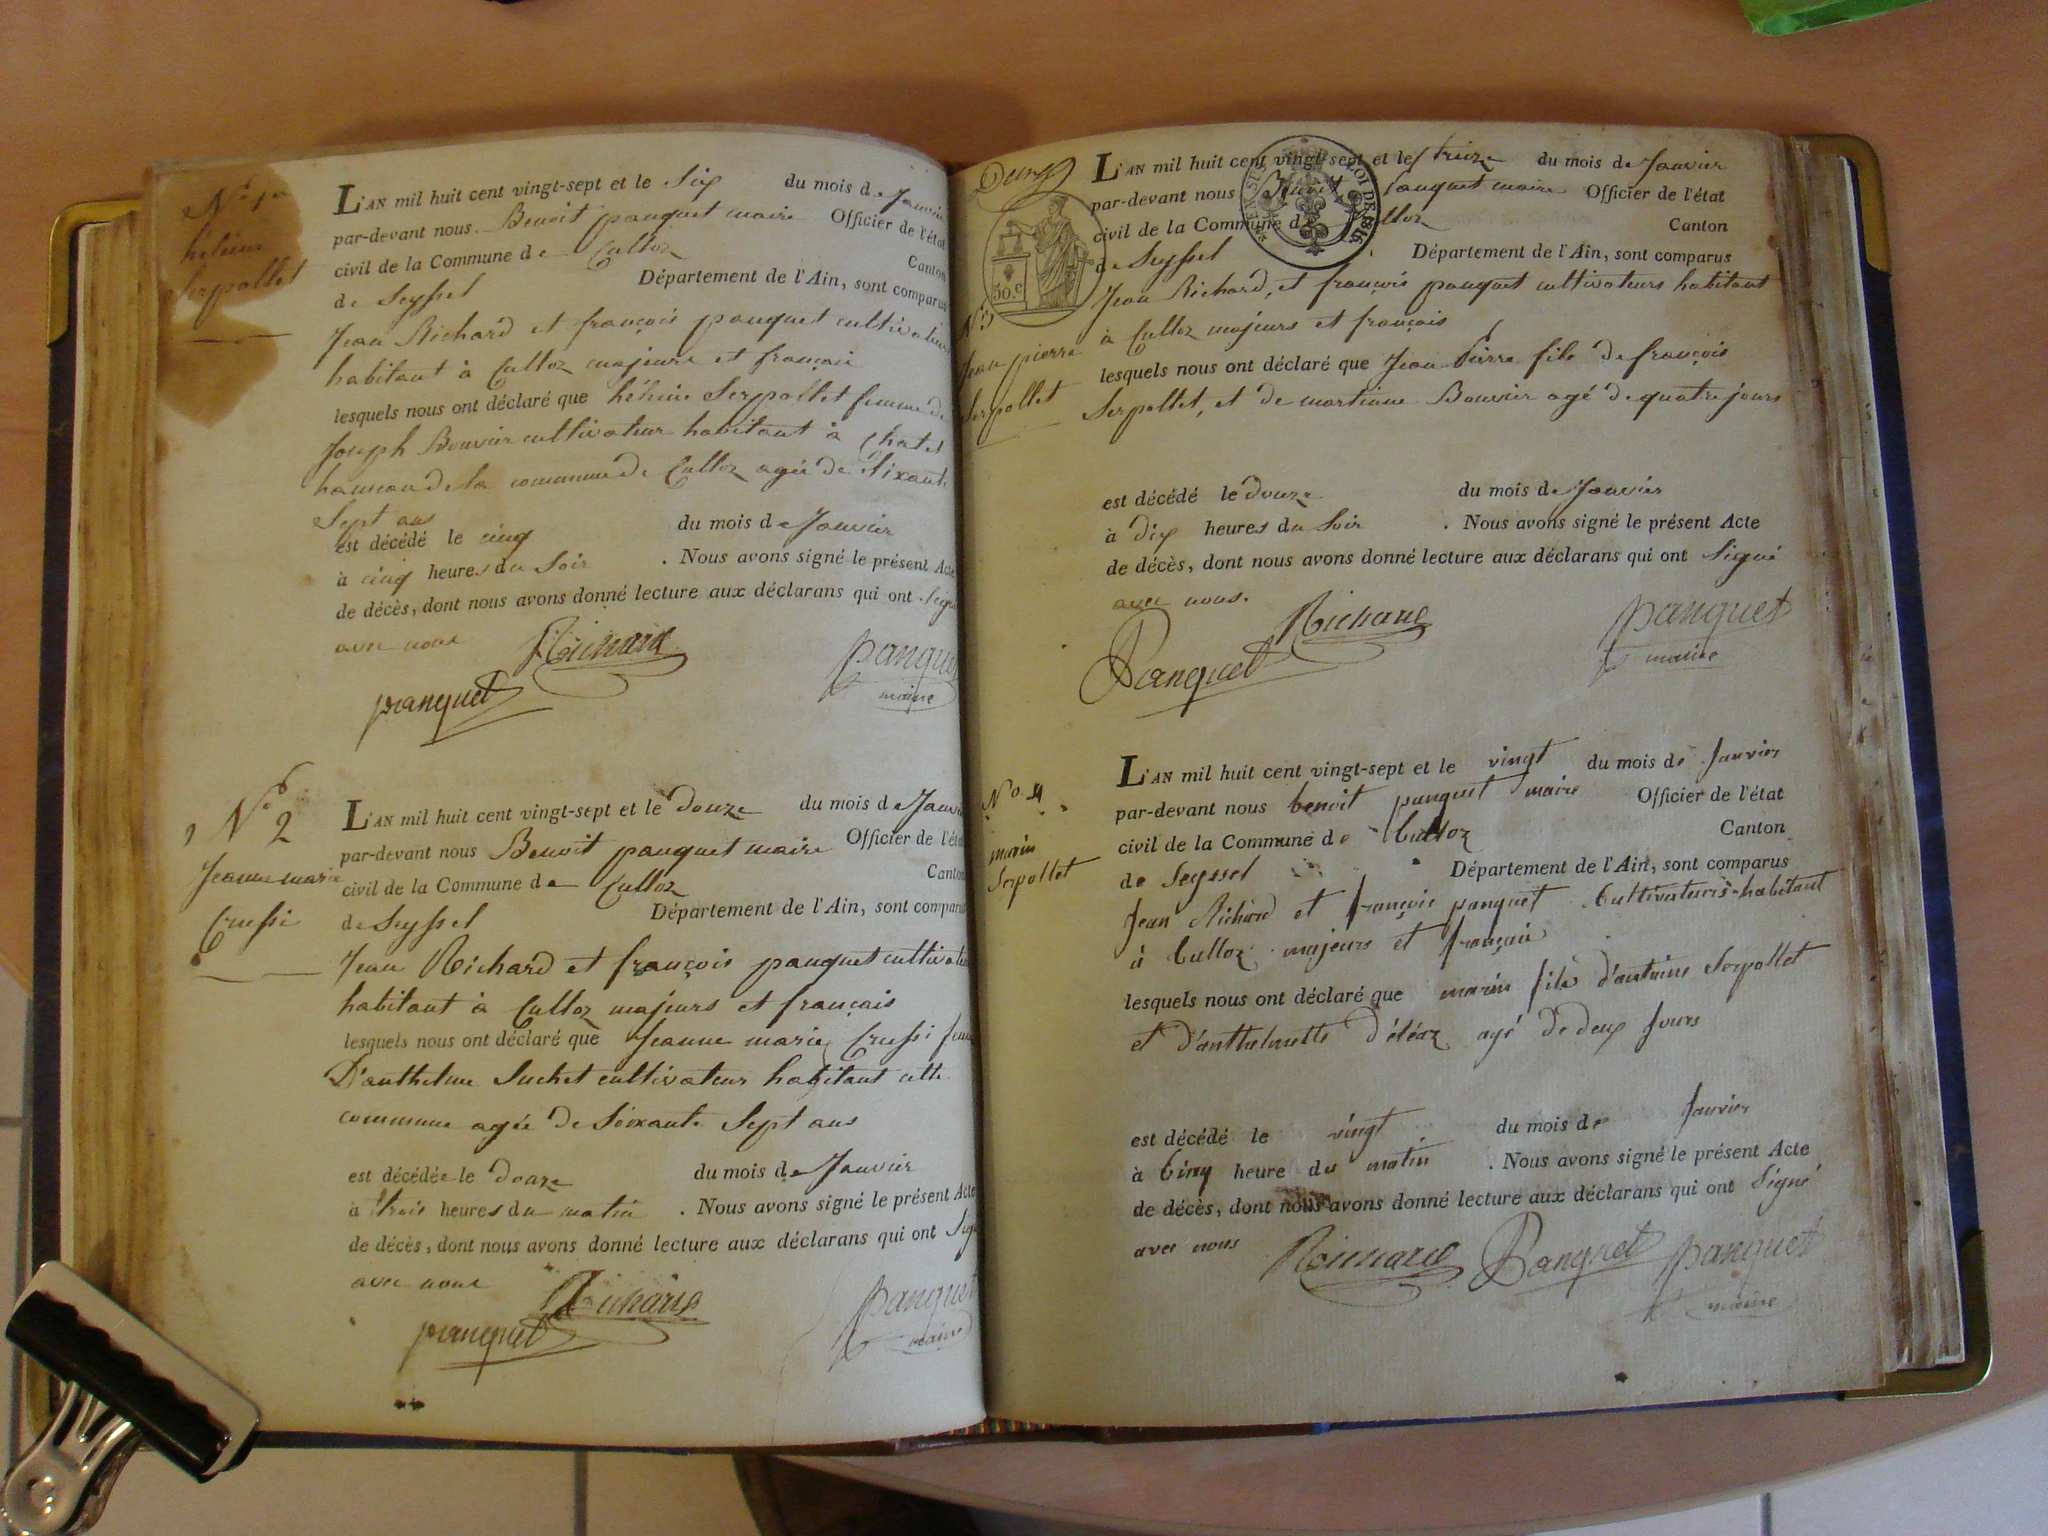 N.º 1er
hélène
Serpollet
L'AN mil huit cent vingt-sept et le Six du mois de Janvier
par-devant nous. Benoit panquet maire Officier de l'état
civil de la Commune de Culloz Canton
de Seyssel Département de l'Ain, sont comparus
Jean Richard et françois panquet cultivateurs
habitant à Culloz majeurs et français
lesquels nous ont déclaré que hélène Serpollet femme de
Joseph Bouvier cultivateur habitant à Chatel
de la commune de Culloz agée de Sixante
Sept ans
est décédé le cinq du mois de Janvier
à cinq heures du Soir . Nous avons signé le présent Acte
de décès, dont nous avons donné lecture aux déclarans qui ont Signé
avec nous Richard panquet
panquet maire
N.º 2
Jeanne marie
Crussi
L'AN mil huit cent vingt-sept et le douze du mois de Janvier
par-devant nous Benoit panquet maire Officier de l'état
civil de la Commune de Culloz Canton
de Seyssel Département de l'Ain, sont comparus
Jean Richard et françois panquet cultivateurs
habitant à Culloz majeurs et français
lesquels nous ont déclaré que Jeanne marie Crussi femme
D'anthelme Suchet cultivateur habitant cette
commune agée de Soixante Sept ans
est décédée le douze du mois de Janvier
à trois heures du matin . Nous avons signé le présent Acte
de décès, dont nous avons donné lecture aux déclarans qui ont Signé
avec nous Richard panquet
panquet maire
Deux
50.c
LOI DE 1816
N.º 3
Jean pierre
Serpollet
L'AN mil huit cent vingt-sept et le treize du mois de Janvier
par-devant nous Benoit panquet maire Officier de l'état
civil de la Commune de Culloz Canton
de Seyssel . Département de l'Ain, sont comparus
Jean Richard, et françois panquet cultivateurs habitant
à Culloz majeurs et français
lesquels nous ont déclaré que Jean Pierre fils de françois
Serpollet, et de martinne Bouvier agé de quatre jours
est décédé le douze du mois de Janvier
à dix heures du Soir . Nous avons signé le présent Acte
de décès, dont nous avons donné lecture aux déclarans qui ont Signé
avec nous. Richard panquet
Panquet maire
N.º 4
marin
Serpollet
L'AN mil huit cent vingt-sept et le vingt du mois de Janvier
par-devant nous benoit panquet maire Officier de l'état
civil de la Commune de Culloz Canton
de Seyssel Département de l'Ain, sont comparus
Jean Richard et françois panquet Cultivateurs habitant
à Culloz majeurs et français
lesquels nous ont déclaré que marin fils d'antoine Serpollet
et d'anthelmette d'éléaz agé de deux Jours
est décédé le vingt du mois de Janvier
à Cinq heure du matin . Nous avons signé le présent Acte
de décès, dont nous avons donné lecture aux déclarans qui ont Signé
avec nous Richard Panquet panquet
maire